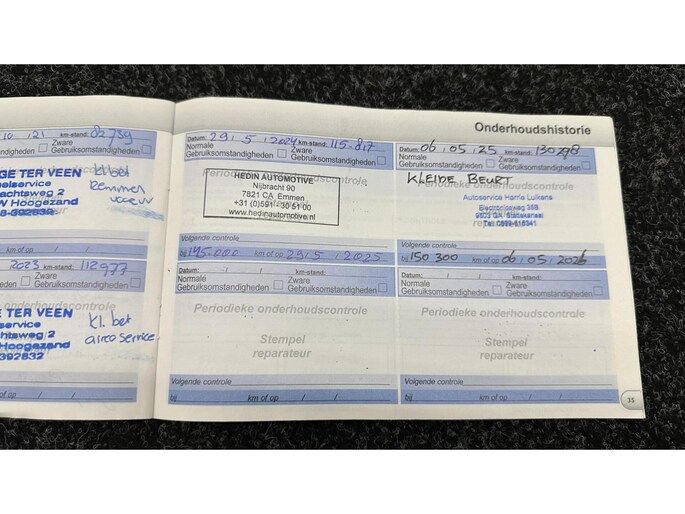 Onderhoudshistorie
10 21 km-stand: 82739
Zware
Gebruiksomstandigheden
GE TER VEEN
elservice
achtsweg 2
W Hoogezand
8-392632
km of op
2023 km-stand: 112977
Zware
Gebruiksomstandigheden
TER VEEN
service
htsweg 2
Hoogezand
-392632
kl. bet
airco service
km of op
Datum: 29, 5, 2024 km-stand: 115.817
Normale
Gebruiksomstandigheden
Zware
Gebruiksomstandigheden
HEDIN AUTOMOTIVE
Nijbracht 90
7821 CA Emmen
+31 (0)591 - 30 51 00
www.hedinautomotive.nl
Volgende controle
bij 145.000 km of op 29, 5, 2025
Datum: 06, 05, 25 km-stand: 130298
Normale
Gebruiksomstandigheden
Zware
Gebruiksomstandigheden
KLEINE BEURT
Periodieke onderhoudscontrole
Autoservice Harrie Luikens
Electronicaweg 35B
9503 GA Stadskanaal
Volgende controle
bij 150 300 km of op 06, 05, 2026
Datum: / / km-stand:
Normale
Gebruiksomstandigheden
Zware
Gebruiksomstandigheden
Periodieke onderhoudscontrole
Stempel
reparateur
Volgende controle
bij km of op / /
Datum: / / km-stand:
Normale
Gebruiksomstandigheden
Zware
Gebruiksomstandigheden
Periodieke onderhoudscontrole
Stempel
reparateur
Volgende controle
bij km of op / /
35